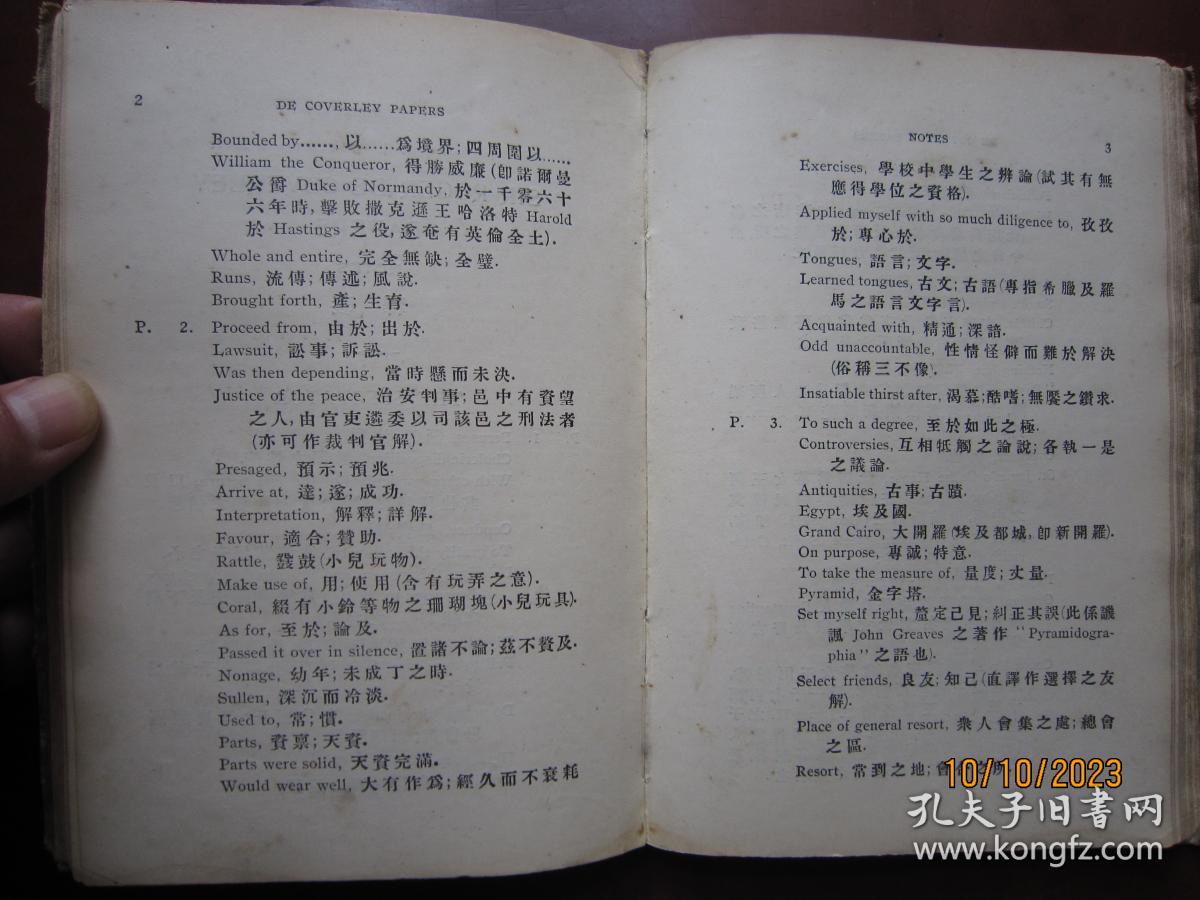 2
DE COVERLEY PAPERS
Bounded by......, 以......爲境界; 四周圍以......
William the Conqueror, 得勝威廉(卽諾爾曼
公爵 Duke of Normandy, 於一千零六十
六年時, 擊敗撒克遜王哈洛特 Harold
於 Hastings 之役, 遂奄有英倫全土).
Whole and entire, 完全無缺; 全璧.
Runs, 流傳; 傳述; 風說.
Brought forth, 產; 生育.
P. 2. Proceed from, 由於; 出於.
Lawsuit, 訟事; 訴訟.
Was then depending, 當時懸而未決.
Justice of the peace, 治安判事; 邑中有資望
之人, 由官吏遴委以司該邑之刑法者
(亦可作裁判官解).
Presaged, 預示; 預兆.
Arrive at, 達; 遂; 成功.
Interpretation, 解釋; 詳解.
Favour, 適合; 贊助.
Rattle, 鼗鼓(小兒玩物).
Make use of, 用; 使用(含有玩弄之意).
Coral, 綴有小鈴等物之珊瑚塊(小兒玩具).
As for, 至於; 論及.
Passed it over in silence, 置諸不論; 茲不贅及.
Nonage, 幼年; 未成丁之時.
Sullen, 深沉而冷淡.
Used to, 常; 慣.
Parts, 資禀; 天資.
Parts were solid, 天資完滿.
Would wear well, 大有作爲; 經久而不衰耗
NOTES
3
Exercises, 學校中學生之辨論(試其有無
應得學位之資格).
Applied myself with so much diligence to, 孜孜
於; 專心於.
Tongues, 語言; 文字.
Learned tongues, 古文; 古語(專指希臘及羅
馬之語言文字言).
Acquainted with, 精通; 深諳.
Odd unaccountable, 性情怪僻而難於解決
(俗稱三不像).
Insatiable thirst after, 渴慕; 酷嗜; 無饜之鑽求.
P. 3. To such a degree, 至於如此之極.
Controversies, 互相牴觸之論說; 各執一是
之議論.
Antiquities, 古事; 古蹟.
Egypt, 埃及國.
Grand Cairo, 大開羅(埃及都城, 卽新開羅).
On purpose, 專誠; 特意.
To take the measure of, 量度; 丈量.
Pyramid, 金字塔.
Set myself right, 釐定己見; 糾正其誤(此係譏
諷 John Greaves 之著作 "Pyramidogra-
phia" 之語也).
Select friends, 良友; 知己(直譯作選擇之友
解).
Place of general resort, 衆人會集之處; 總會
之區.
Resort, 常到之地; 會
10/10/2023
孔夫子旧书网
www.kongfz.com